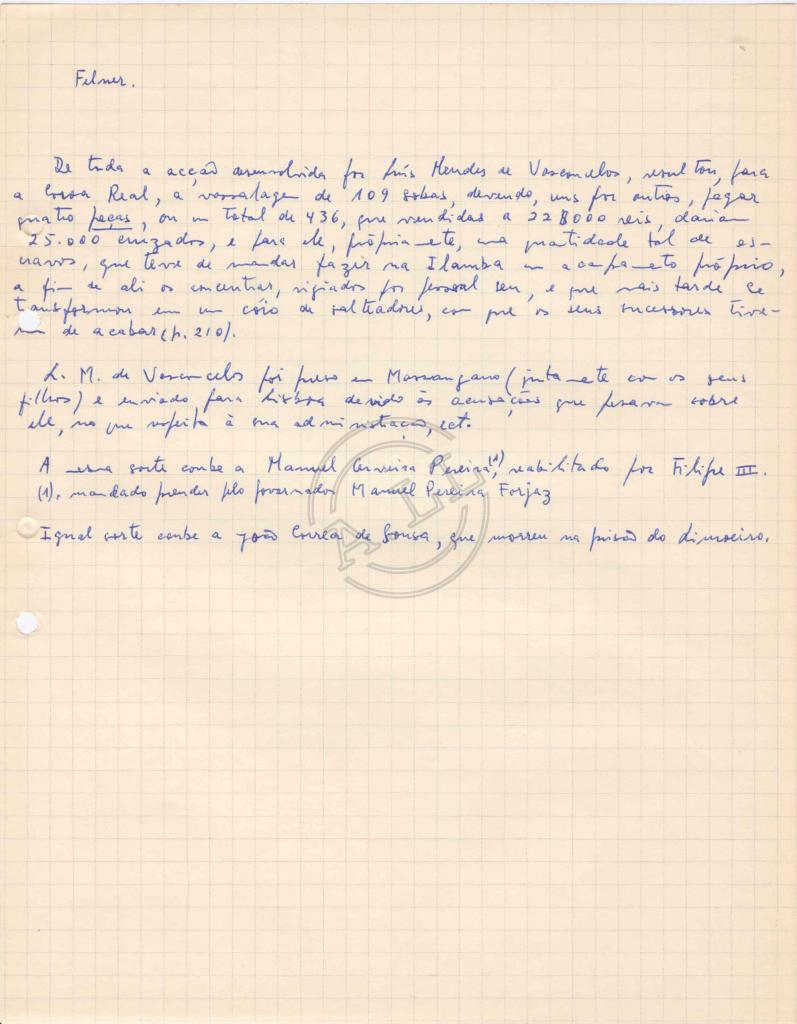 Felner.
De toda a acção desenvolvida por Luís Mendes de Vasconcelos, resultou, para
a Coroa Real, a vassalagem de 109 sobas, devendo, uns por outros, pagar
quatro peças, ou um total de 436, que vendidas a 22$000 reis, dariam
25.000 cruzados, e para ele, pròpriamente, uma quantidade tal de es-
cravos, que teve de mandar fazer na Ilamba um acampamento próprio,
a fim de ali os concentrar, vigiados por pessoal seu, e que mais tarde se
transformou em um cóio de salteadores, com que os seus sucessores tive-
ram de acabar (p. 210).
L. M. de Vasconcelos foi preso em Massangano (juntamente com os seus
filhos) e enviado para Lisboa devido às acusações que pesavam sobre
ele, no que respeita à sua administração, ect.
A mesma sorte coube a Manuel Cerveira Pereira,(1) reabilitado por Filipe III.
(1). mandado prender pelo governador Manuel Pereira Forjaz
Igual sorte coube a João Corrêa de Sousa, que morreu na prisão do Limoeiro.
ALL